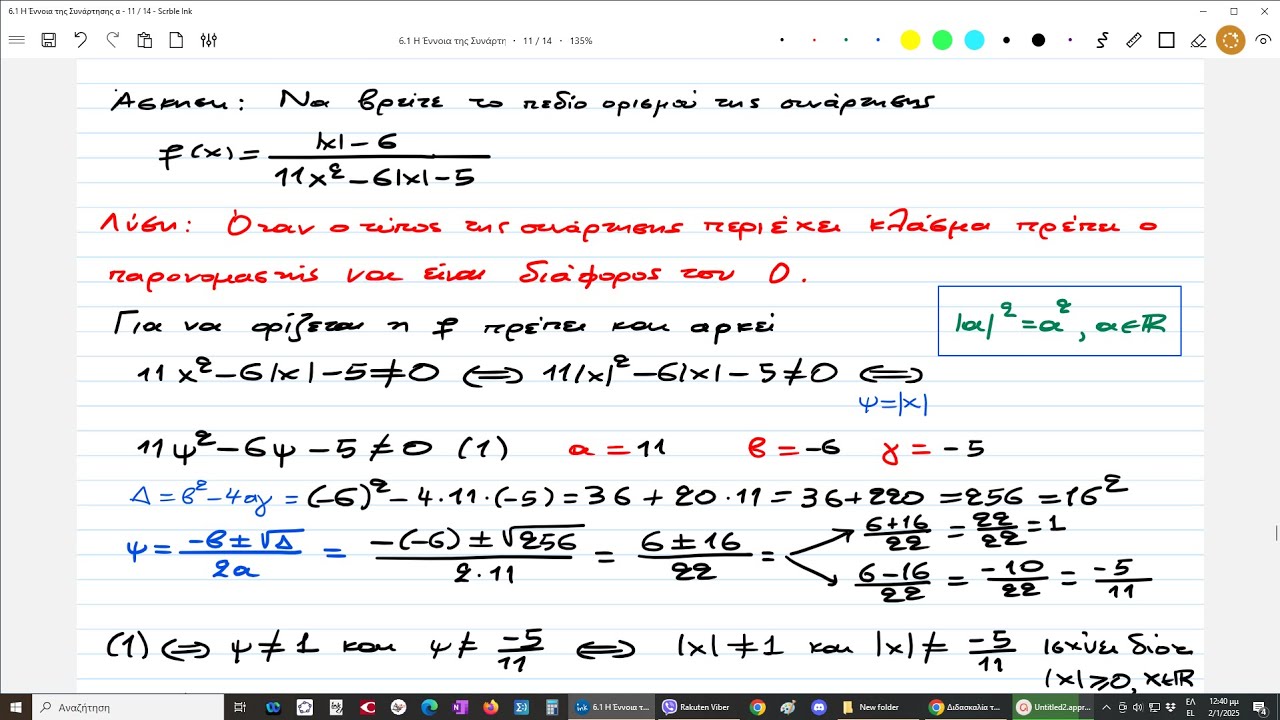 6.1 Η Έννοια της Συνάρτησης α - 11 / 14 - Scrble Ink
6.1 Η Έννοια της Συνάρτη · 11 / 14 · 135%
Άσκηση: Να βρείτε το πεδίο ορισμού της συνάρτησης
f(x) = (|x| - 6) / (11x² - 6|x| - 5)
Λύση: Όταν ο τύπος της συνάρτησης περιέχει κλάσμα πρέπει ο
παρονομαστής να είναι διάφορος του 0.
|α|² = α², α ∈ ℝ
Για να ορίζεται η f πρέπει και αρκεί
11x² - 6|x| - 5 ≠ 0 ⟺ 11|x|² - 6|x| - 5 ≠ 0 ⟺
ψ = |x|
11ψ² - 6ψ - 5 ≠ 0 (1) α = 11 β = -6 γ = -5
Δ = β² - 4αγ = (-6)² - 4·11·(-5) = 36 + 20·11 = 36 + 220 = 256 = 16²
ψ = (-β ± √Δ) / 2α = (-(-6) ± √256) / 2·11 = (6 ± 16) / 22 =
(6+16) / 22 = 22/22 = 1
(6-16) / 22 = -10/22 = -5/11
(1) ⟺ ψ ≠ 1 και ψ ≠ -5/11 ⟺ |x| ≠ 1 και |x| ≠ -5/11 ισχύει διότι
|x| ≥ 0, x ∈ ℝ
Αναζήτηση
6.1 Η Έννοια τ...
Rakuten Viber
New folder
Διδασκαλία τ...
Untitled2.appr...
ΕΛ
EL
12:40 μμ
2/1/2025